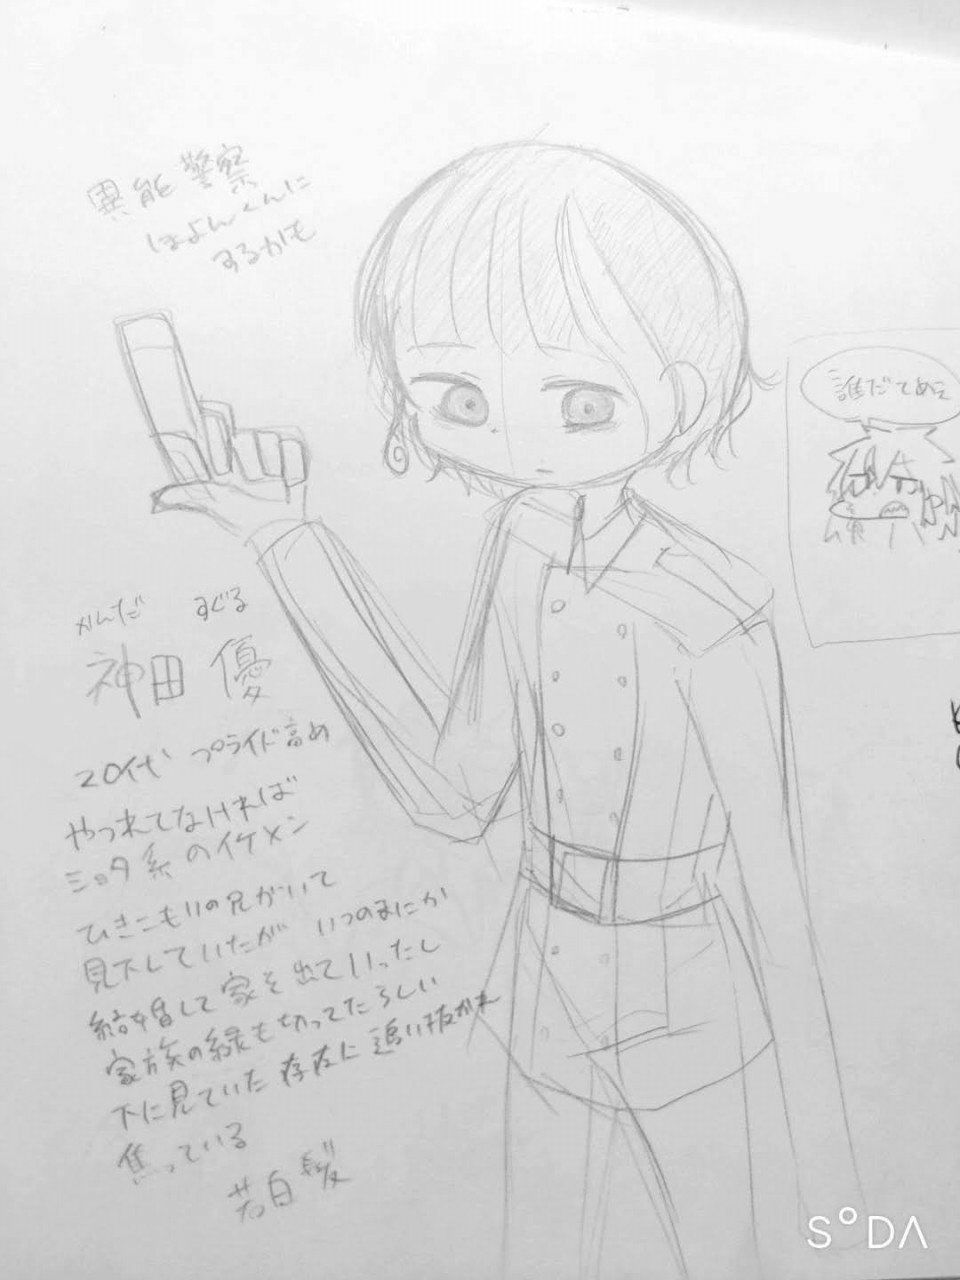 異能警察
ほよんくんに
するかも
誰だてめェ
かんだ すぐる
神田 優
20代 プライド高め
やつれてなければ
ショタ系のイケメン
ひきこもりの兄がいて
見下していたが いつのまにか
結婚して家を出ていったし
家族の縁も切ってたらしい
下に見ていた存在に追い抜かれ
焦っている
若白髪
SODA